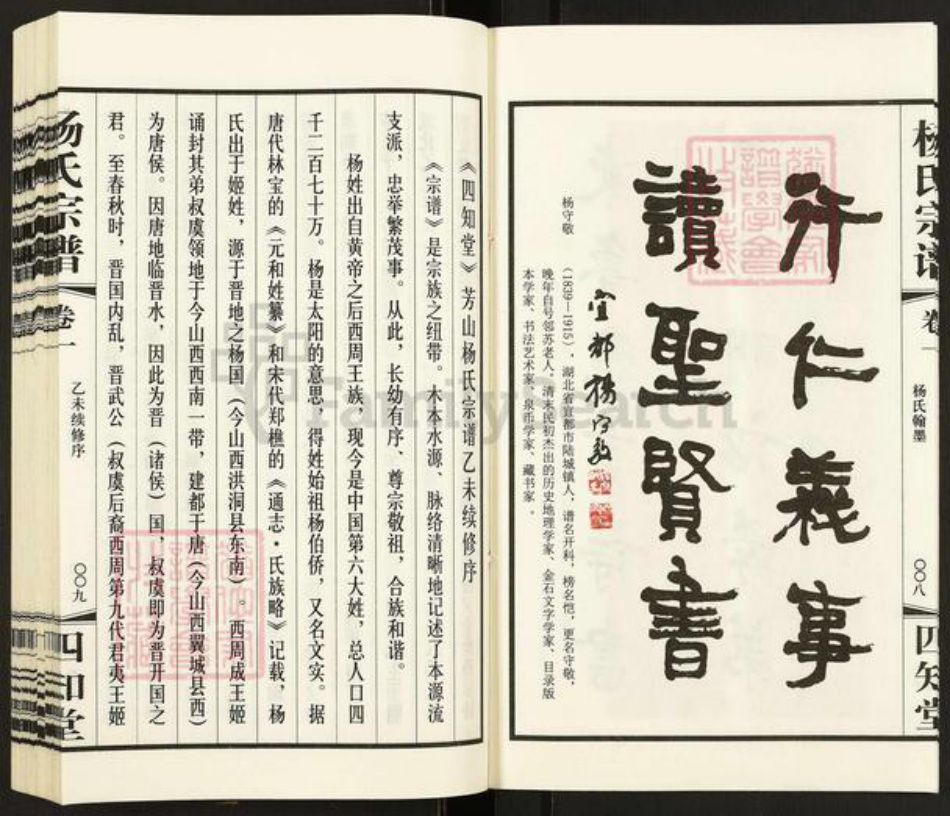 杨氏宗谱
卷一
杨氏翰墨
〇〇八
四知堂
行仁义事
讀聖賢書
宜都楊守敬
杨守敬
(1839—1915)，湖北省宜都市陆城镇人，谱名开科，榜名恺，更名守敬，
晚年自号邻苏老人，清末民初杰出的历史地理学家、金石文字学家、目录版
本学家、书法艺术家、泉币学家、藏书家。
《四知堂》芳山杨氏宗谱乙未续修序
《宗谱》是宗族之纽带。木本水源、脉络清晰地记述了本源流
支派，忠举繁茂事。从此，长幼有序、尊宗敬祖，合族和谐。
杨姓出自黄帝之后西周王族，现今是中国第六大姓，总人口四
千二百七十万。杨是太阳的意思，得姓始祖杨伯侨，又名文实。据
唐代林宝的《元和姓纂》和宋代郑樵的《通志·氏族略》记载，杨
氏出于姬姓，源于晋地之杨国（今山西洪洞县东南）。西周成王姬
诵封其弟叔虞领地于今山西西南一带，建都于唐（今山西翼城县西）
为唐侯。因唐地临晋水，因此为晋（诸侯）国，叔虞即为晋开国之
君。至春秋时，晋国内乱，晋武公（叔虞后裔西周第九代君夷王姬
杨氏宗谱
卷一
乙未续修序
〇〇九
四知堂
FamilySearch